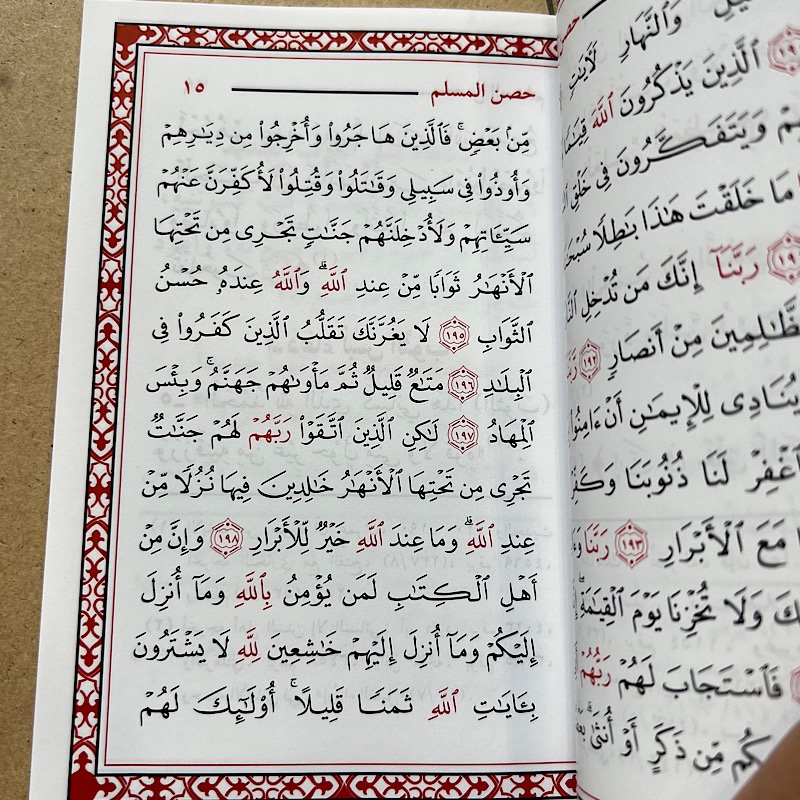 يْلِ وَٱلنَّهَارِ لَأٓيَٰتٍ
ٱلَّذِينَ يَذْكُرُونَ ٱللَّهَ
وَيَتَفَكَّرُونَ فِى خَلْقِ
مَا خَلَقْتَ هَٰذَا بَٰطِلًا
رَبَّنَآ إِنَّكَ مَن تُدْخِلِ
مِنْ أَنصَارٍ ١٩٢
يُنَادِى لِلْإِيمَٰنِ أَنْ ءَامِنُوا۟
لَنَا ذُنُوبَنَا
مَعَ ٱلْأَبْرَارِ ١٩٣ رَبَّنَا
وَلَا تُخْزِنَا يَوْمَ ٱلْقِيَٰمَةِ
فَٱسْتَجَابَ لَهُمْ رَبُّهُمْ
مِّن ذَكَرٍ أَوْ أُنثَىٰ
حصن المسلم ١٥
مِّنۢ بَعْضٍ ۖ فَٱلَّذِينَ هَاجَرُوا۟ وَأُخْرِجُوا۟ مِن دِيَٰرِهِمْ
وَأُوذُوا۟ فِى سَبِيلِى وَقَٰتَلُوا۟ وَقُتِلُوا۟ لَأُكَفِّرَنَّ عَنْهُمْ
سَيِّـَٔاتِهِمْ وَلَأُدْخِلَنَّهُمْ جَنَّٰتٍ تَجْرِى مِن تَحْتِهَا
ٱلْأَنْهَٰرُ ثَوَابًا مِّنْ عِندِ ٱللَّهِ ۗ وَٱللَّهُ عِندَهُۥ حُسْنُ
ٱلثَّوَابِ ١٩٥ لَا يَغُرَّنَّكَ تَقَلُّبُ ٱلَّذِينَ كَفَرُوا۟ فِى
ٱلْبِلَٰدِ ١٩٦ مَتَٰعٌ قَلِيلٌ ثُمَّ مَأْوَىٰهُمْ جَهَنَّمُ ۚ وَبِئْسَ
ٱلْمِهَادُ ١٩٧ لَٰكِنِ ٱلَّذِينَ ٱتَّقَوْا۟ رَبَّهُمْ لَهُمْ جَنَّٰتٌ
تَجْرِى مِن تَحْتِهَا ٱلْأَنْهَٰرُ خَٰلِدِينَ فِيهَا نُزُلًا مِّنْ
عِندِ ٱللَّهِ ۗ وَمَا عِندَ ٱللَّهِ خَيْرٌ لِّلْأَبْرَارِ ١٩٨ وَإِنَّ مِنْ
أَهْلِ ٱلْكِتَٰبِ لَمَن يُؤْمِنُ بِٱللَّهِ وَمَآ أُنزِلَ
إِلَيْكُمْ وَمَآ أُنزِلَ إِلَيْهِمْ خَٰشِعِينَ لِلَّهِ لَا يَشْتَرُونَ
بِـَٔايَٰتِ ٱللَّهِ ثَمَنًا قَلِيلًا ۚ أُو۟لَٰٓئِكَ لَهُمْ